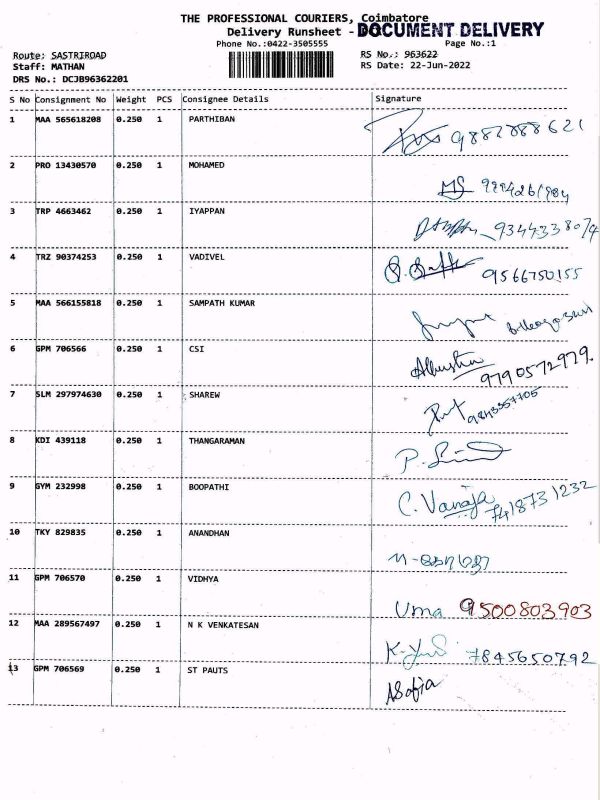 THE PROFESSIONAL COURIERS, Coimbatore
Delivery Runsheet - DOCUMENT DELIVERY
Phone No.:0422-3505555 Page No.:1
Route: SASTRIROAD RS No.: 963622
Staff: MATHAN RS Date: 22-Jun-2022
DRS No.: DCJB96362201
S No Consignment No Weight PCS Consignee Details Signature
1 MAA 565618208 0.250 1 PARTHIBAN
2 PRO 13430570 0.250 1 MOHAMED
3 TRP 4663462 0.250 1 IYAPPAN 9344338074
4 TRZ 90374253 0.250 1 VADIVEL 9566750155
5 MAA 566155818 0.250 1 SAMPATH KUMAR
6 GPM 706566 0.250 1 CSI 9790572979.
7 SLM 297974630 0.250 1 SHAREW 9843357705
8 KDI 439118 0.250 1 THANGARAMAN
9 GYM 232998 0.250 1 BOOPATHI C. Vanaja 7418731232
10 TKY 829835 0.250 1 ANANDHAN
11 GPM 706570 0.250 1 VIDHYA Uma 9500803903
12 MAA 289567497 0.250 1 N K VENKATESAN 7845650792
13 GPM 706569 0.250 1 ST PAUTS ASofia